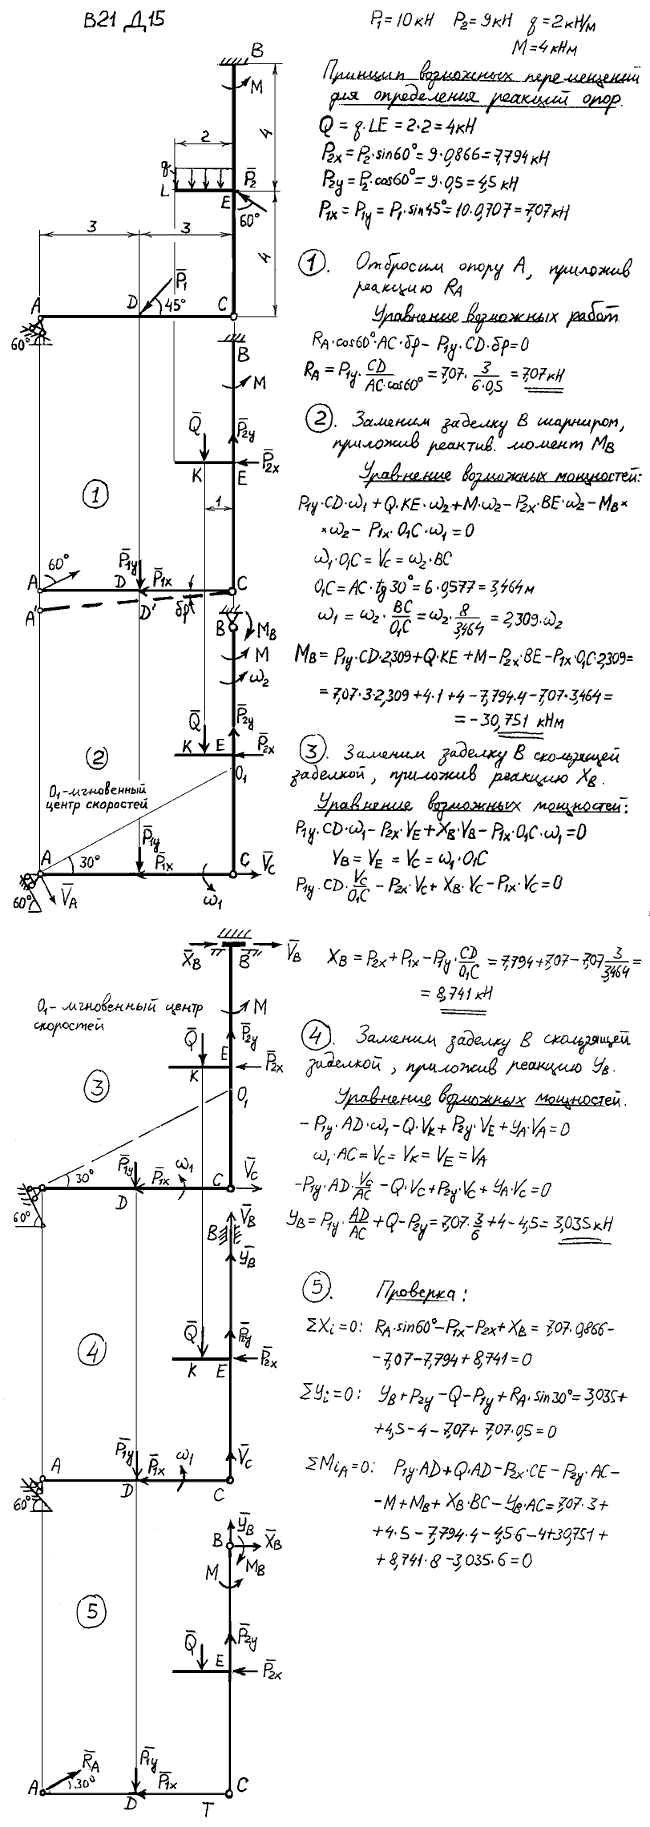 B21 Д15
P₁=10кН P₂=9кН q=2кН/м
M=4кНм
Принцип возможных перемещений
для определения реакций опор.
Q = q·LE = 2·2=4кН
P₂x=P₂·sin60°=9·0,866=7,794кН
P₂y=P₂·cos60°=9·0,5=4,5 кН
P₁x=P₁y=P₁·sin45°=10·0,707=7,07кН
B
M
4
2
q
L
E
P̅₂
60°
3
3
4
P̅₁
A
D
45°
C
60°
①. Отбросим опору A, приложив
реакцию RA
Уравнение возможных работ
RA·cos60°·AC·δφ - P₁y·CD·δφ=0
RA=P₁y·CD/(AC·cos60°)=7,07·3/(6·0,5)=7,07кН
B
M
Q̅
P̅₂y
K
E
P̅₂x
①
1
60°
A
D
P̅₁y
P̅₁x
C
A'
D'
δφ
②. Заменим заделку B шарниром,
приложив реактив. момент MB
Уравнение возможных мощностей:
P₁y·CD·ω₁+Q·KE·ω₂+M·ω₂-P₂x·BE·ω₂-MB×
×ω₂-P₁x·O₁C·ω₁=0
ω₁·O₁C=VC=ω₂·BC
O₁C=AC·tg30°=6·0,577=3,464м
ω₁=ω₂·BC/O₁C=ω₂·8/3,464=2,309·ω₂
MB=P₁y·CD·2,309+Q·KE+M-P₂x·BE-P₁x·O₁C·2,309=
=7,07·3·2,309+4·1+4-7,794·4-7,07·3,464=
=-30,751 кНм
B
MB
M
ω₂
Q̅
P̅₂y
K
E
P̅₂x
O₁
②
O₁-мгновенный
центр скоростей
A
30°
P̅₁y
P̅₁x
C
V̅C
60°
V̅A
ω₁
③. Заменим заделку B скользящей
заделкой, приложив реакцию XB.
Уравнение возможных мощностей:
P₁y·CD·ω₁-P₂x·VE+XB·VB-P₁x·O₁C·ω₁=0
VB=VE=VC=ω₁·O₁C
P₁y·CD·VC/O₁C-P₂x·VC+XB·VC-P₁x·VC=0
XB=P₂x+P₁x-P₁y·CD/O₁C=7,794+7,07-7,07·3/3,464=
=8,741кН
X̅B
B
V̅B
O₁-мгновенный центр
скоростей
M
Q̅
P̅₂y
K
E
P̅₂x
O₁
③
30°
P̅₁y
P̅₁x
ω₁
C
V̅C
D
60°
④. Заменим заделку B скользящей
заделкой, приложив реакцию YB.
Уравнение возможных мощностей.
-P₁y·AD·ω₁-Q·VK+P₂y·VE+YA·VA=0
ω₁·AC=VC=VK=VE=VA
-P₁y·AD·VC/AC-Q·VC+P₂y·VC+YA·VC=0
YB=P₁y·AD/AC+Q-P₂y=7,07·3/6+4-4,5=3,035кН
V̅B
B
Y̅B
Q̅
P̅₂y
K
E
P̅₂x
④
A
P̅₁y
P̅₁x
ω₁
V̅C
D
C
60°
⑤. Проверка:
ΣXi=0: RA·sin60°-P₁x-P₂x+XB=7,07·0,866-
-7,07-7,794+8,741=0
ΣYi=0: YB+P₂y-Q-P₁y+RA·sin30°=3,035+
+4,5-4-7,07+7,07·0,5=0
ΣMiA=0: P₁y·AD+Q·AD-P₂x·CE-P₂y·AC-
-M+MB+XB·BC-YB·AC=7,07·3+
+4·5-7,794·4-4,5·6-4+30,751+
+8,741·8-3,035·6=0
Y̅B
B
X̅B
M
MB
⑤
Q̅
P̅₂y
E
P̅₂x
R̅A
A
30°
P̅₁y
P̅₁x
D
T
C